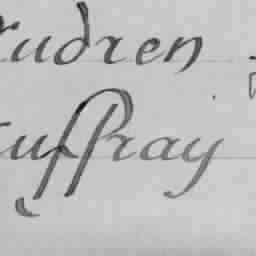 rudren
uffray